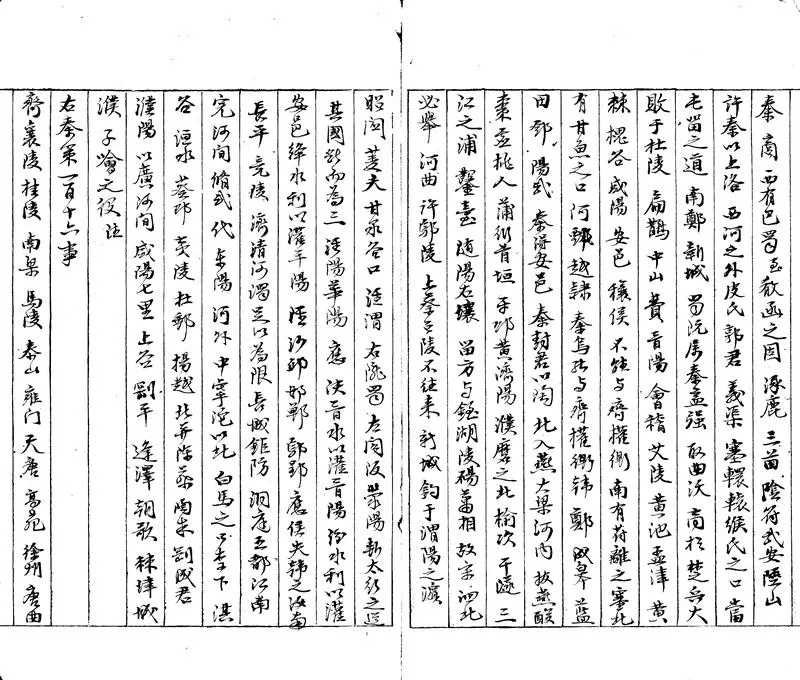 秦 商 西有巴蜀 至殽函之固 涿鹿 三苗 陰符 武安 陘山
許秦以上洛 西河之外 皮氏 郭君 義渠 塞轘轅緱氏之口 當
屯留之道 南鄭 新城 蜀既屬秦益强 取曲沃 商於 楚兵大
敗于杜陵 扁鵲 中山 費 晉陽 會稽 艾陵 黄池 孟津 黄
棘 槐谷 咸陽 安邑 穰侯 不能与齊權衡 南有符離之塞北
有甘魚之口 河 鄄 越隸 秦烏能与齊權衡韩 鄭 成皋 藍
田 鄧 陽武 秦得安邑 秦封君以陶 北入燕 大梁 河内 拔燕酸
棗虚桃人 蒲衍首垣 平邱黄濟陽 濮磨之北 榆次 干遂 三
江之浦 鑿臺 随陽右壤 留方与铚湖陵碭蕭相故宋 泗北
必舉 河曲 許鄢陵 上蔡召陵不往来 新城 釣于渭陽之濱
昭関 菱夫 甘泉谷口 涇渭 右隴蜀 左関阪 滎陽 斬太行之道
其國斷而為三 涇陽華陽 應 决晋水以灌晋陽 汾水利以灌
安邑 绛水利以灌平陽 陘 汝 邯鄲 鄢郢 應侯失韩之汝南
長平 竟陵 濟清河濁足以為限 長城鉅防 洞庭五都江南
完河間 脩武 代 东陽 河外 中 滹沱以北 白馬之口 下 淇
谷 洹水 葵邱 夷陵 杜郵 揚越 北并陈蔡 南 剛成君
濮陽 以廣河間 咸陽七里 上谷 剛平 逢泽 朝歌 棘津 城
濮 子噲之役注
右秦策一百十六事
齊 襄陵 桂陵 南梁 馬陵 泰山 雍门 天唐 高宛 徐州 唐曲